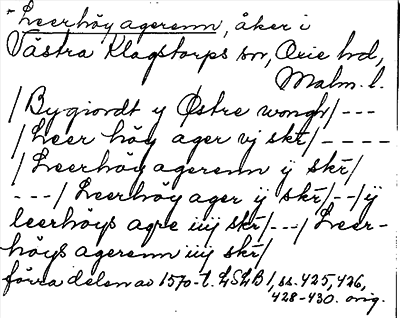 Leerhöÿ agerenn, åker i
Västra Klagstorps sn, Oxie hd,
Malm. l.
/Bygiordt ÿ Østre wongh/ ---
/Leer höÿ ager vj skr/ ----
/Leerhöÿ agerenn ÿ skr/
---/Leerhöÿ ager ÿ skr/--/ÿ
leerhöÿs agre iiij skr/---/Leer-
höÿs agerenn iiij skr/
förra delen av 1570-t. LSLB 1, ss. 425, 426,
428-430. orig.